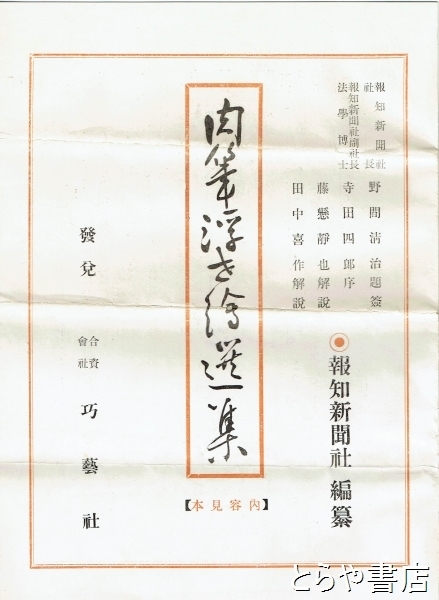 報知新聞社社長 野間清治題簽
報知新聞社副社長法學博士 寺田四郎序
藤懸靜也解説
田中喜作解説
報知新聞社 編纂
肉筆浮世繪選集
【內容見本】
發兌 合資會社 巧藝社
とらや書店